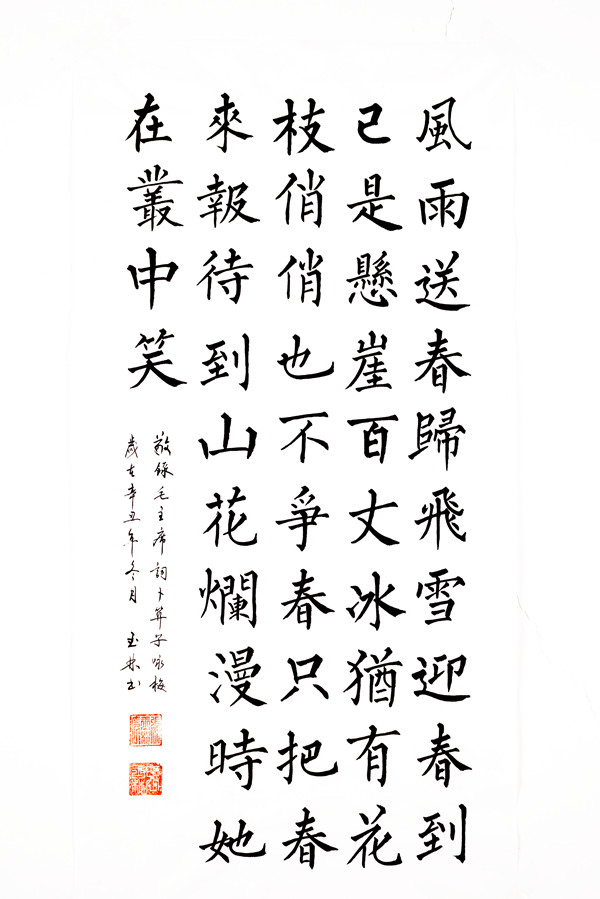 風雨送春歸飛雪迎春到
已是懸崖百丈冰猶有花
枝俏俏也不爭春只把春
來報待到山花爛漫時她
在叢中笑
敬錄毛主席詞卜算子咏梅
歲在辛丑年冬月 玉林書